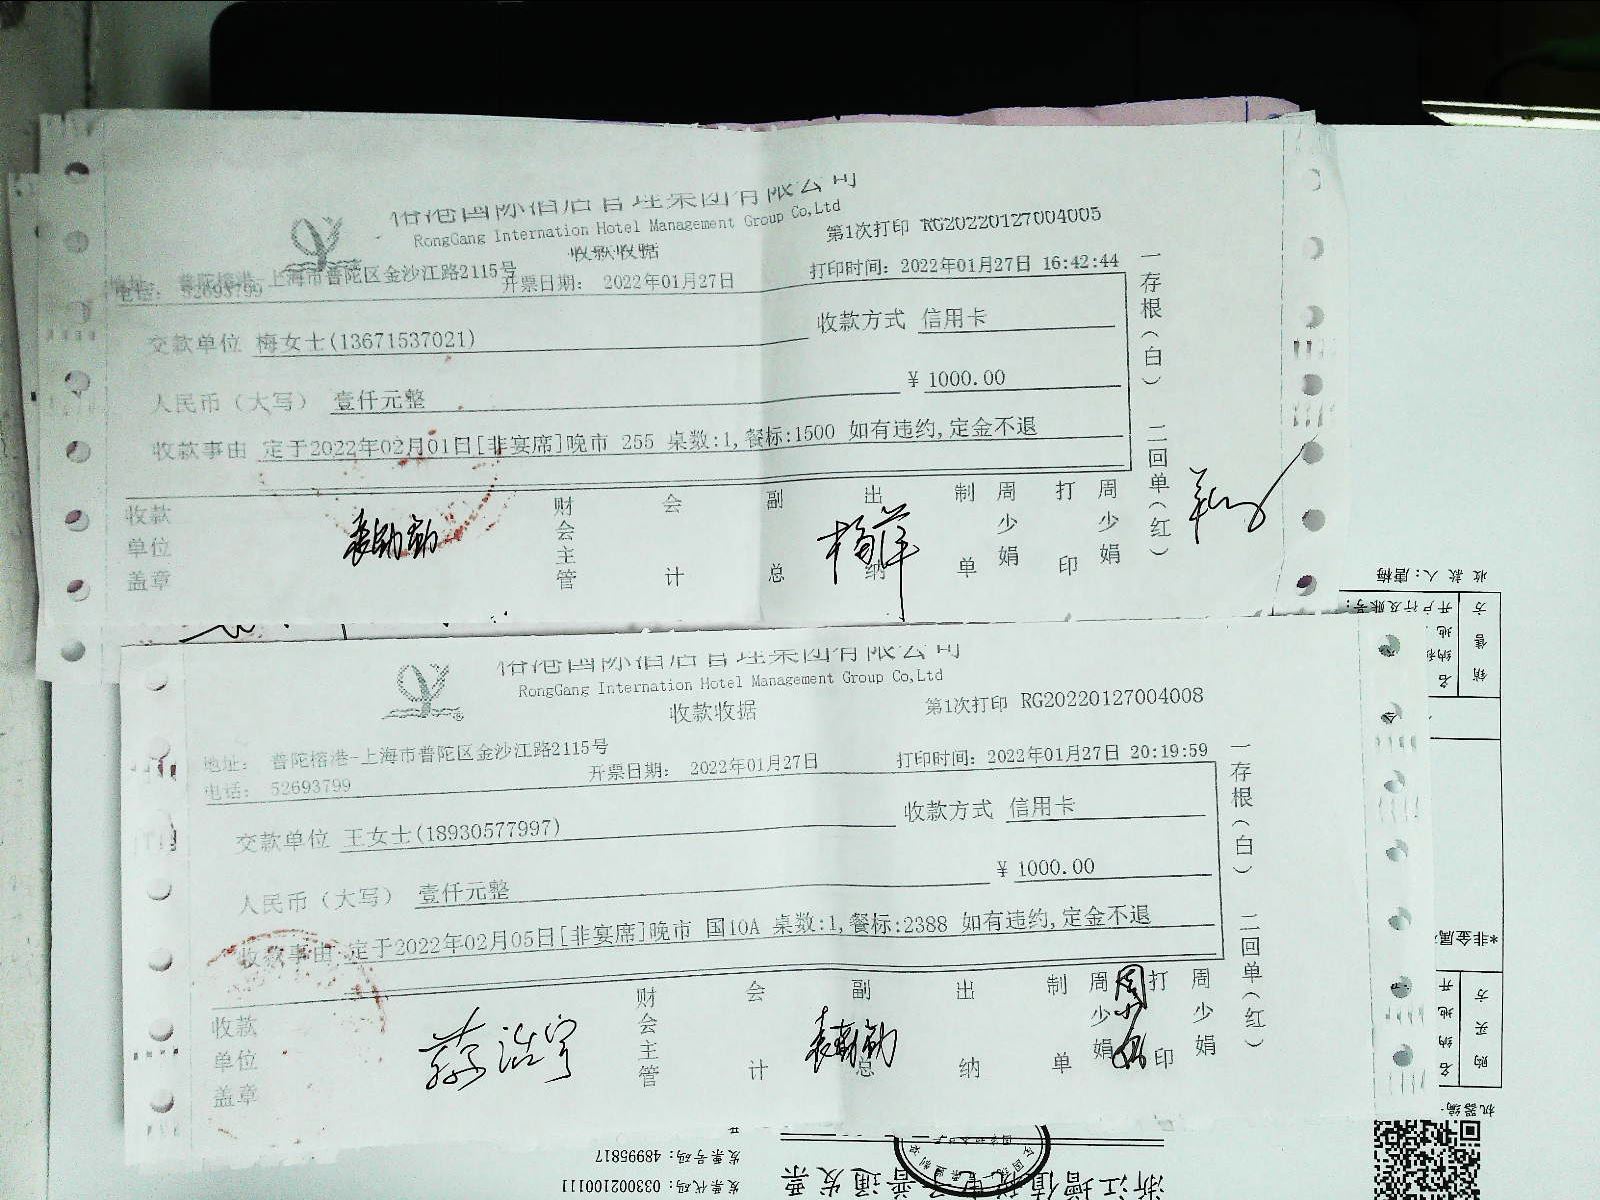 国际酒店管理集团有限公司
RongGang Internation Hotel Management Group Co,Ltd
收款收据
第1次打印 RG20220127004005
地址: 普陀榕港-上海市普陀区金沙江路2115号
电话: 52693799
开票日期: 2022年01月27日
打印时间: 2022年01月27日 16:42:44
交款单位 梅女士(13671537021)
收款方式 信用卡
人民币(大写) 壹仟元整
¥ 1000.00
收款事由 定于2022年02月01日[非宴席]晚市 255 桌数:1,餐标:1500 如有违约,定金不退
收款单位盖章
财会主管
会计
副总
出纳
杨萍
制单
周少娟
打印
周少娟
一存根(白) 二回单(红)
国际酒店管理集团有限公司
RongGang Internation Hotel Management Group Co,Ltd
收款收据
第1次打印 RG20220127004008
地址: 普陀榕港-上海市普陀区金沙江路2115号
电话: 52693799
开票日期: 2022年01月27日
打印时间: 2022年01月27日 20:19:59
交款单位 王女士(18930577997)
收款方式 信用卡
人民币(大写) 壹仟元整
¥ 1000.00
收款事由 定于2022年02月05日[非宴席]晚市 国10A 桌数:1,餐标:2388 如有违约,定金不退
收款单位盖章
蔡浩宇
财会主管
会计
副总
出纳
制单
周少娟
打印
周少娟
一存根(白) 二回单(红)
收款人:唐梅
销售方
开户行及账号:
购买方
*非金属
机器编
浙江增值税电子普通发票
发票代码: 033002100111
发票号码: 48995817